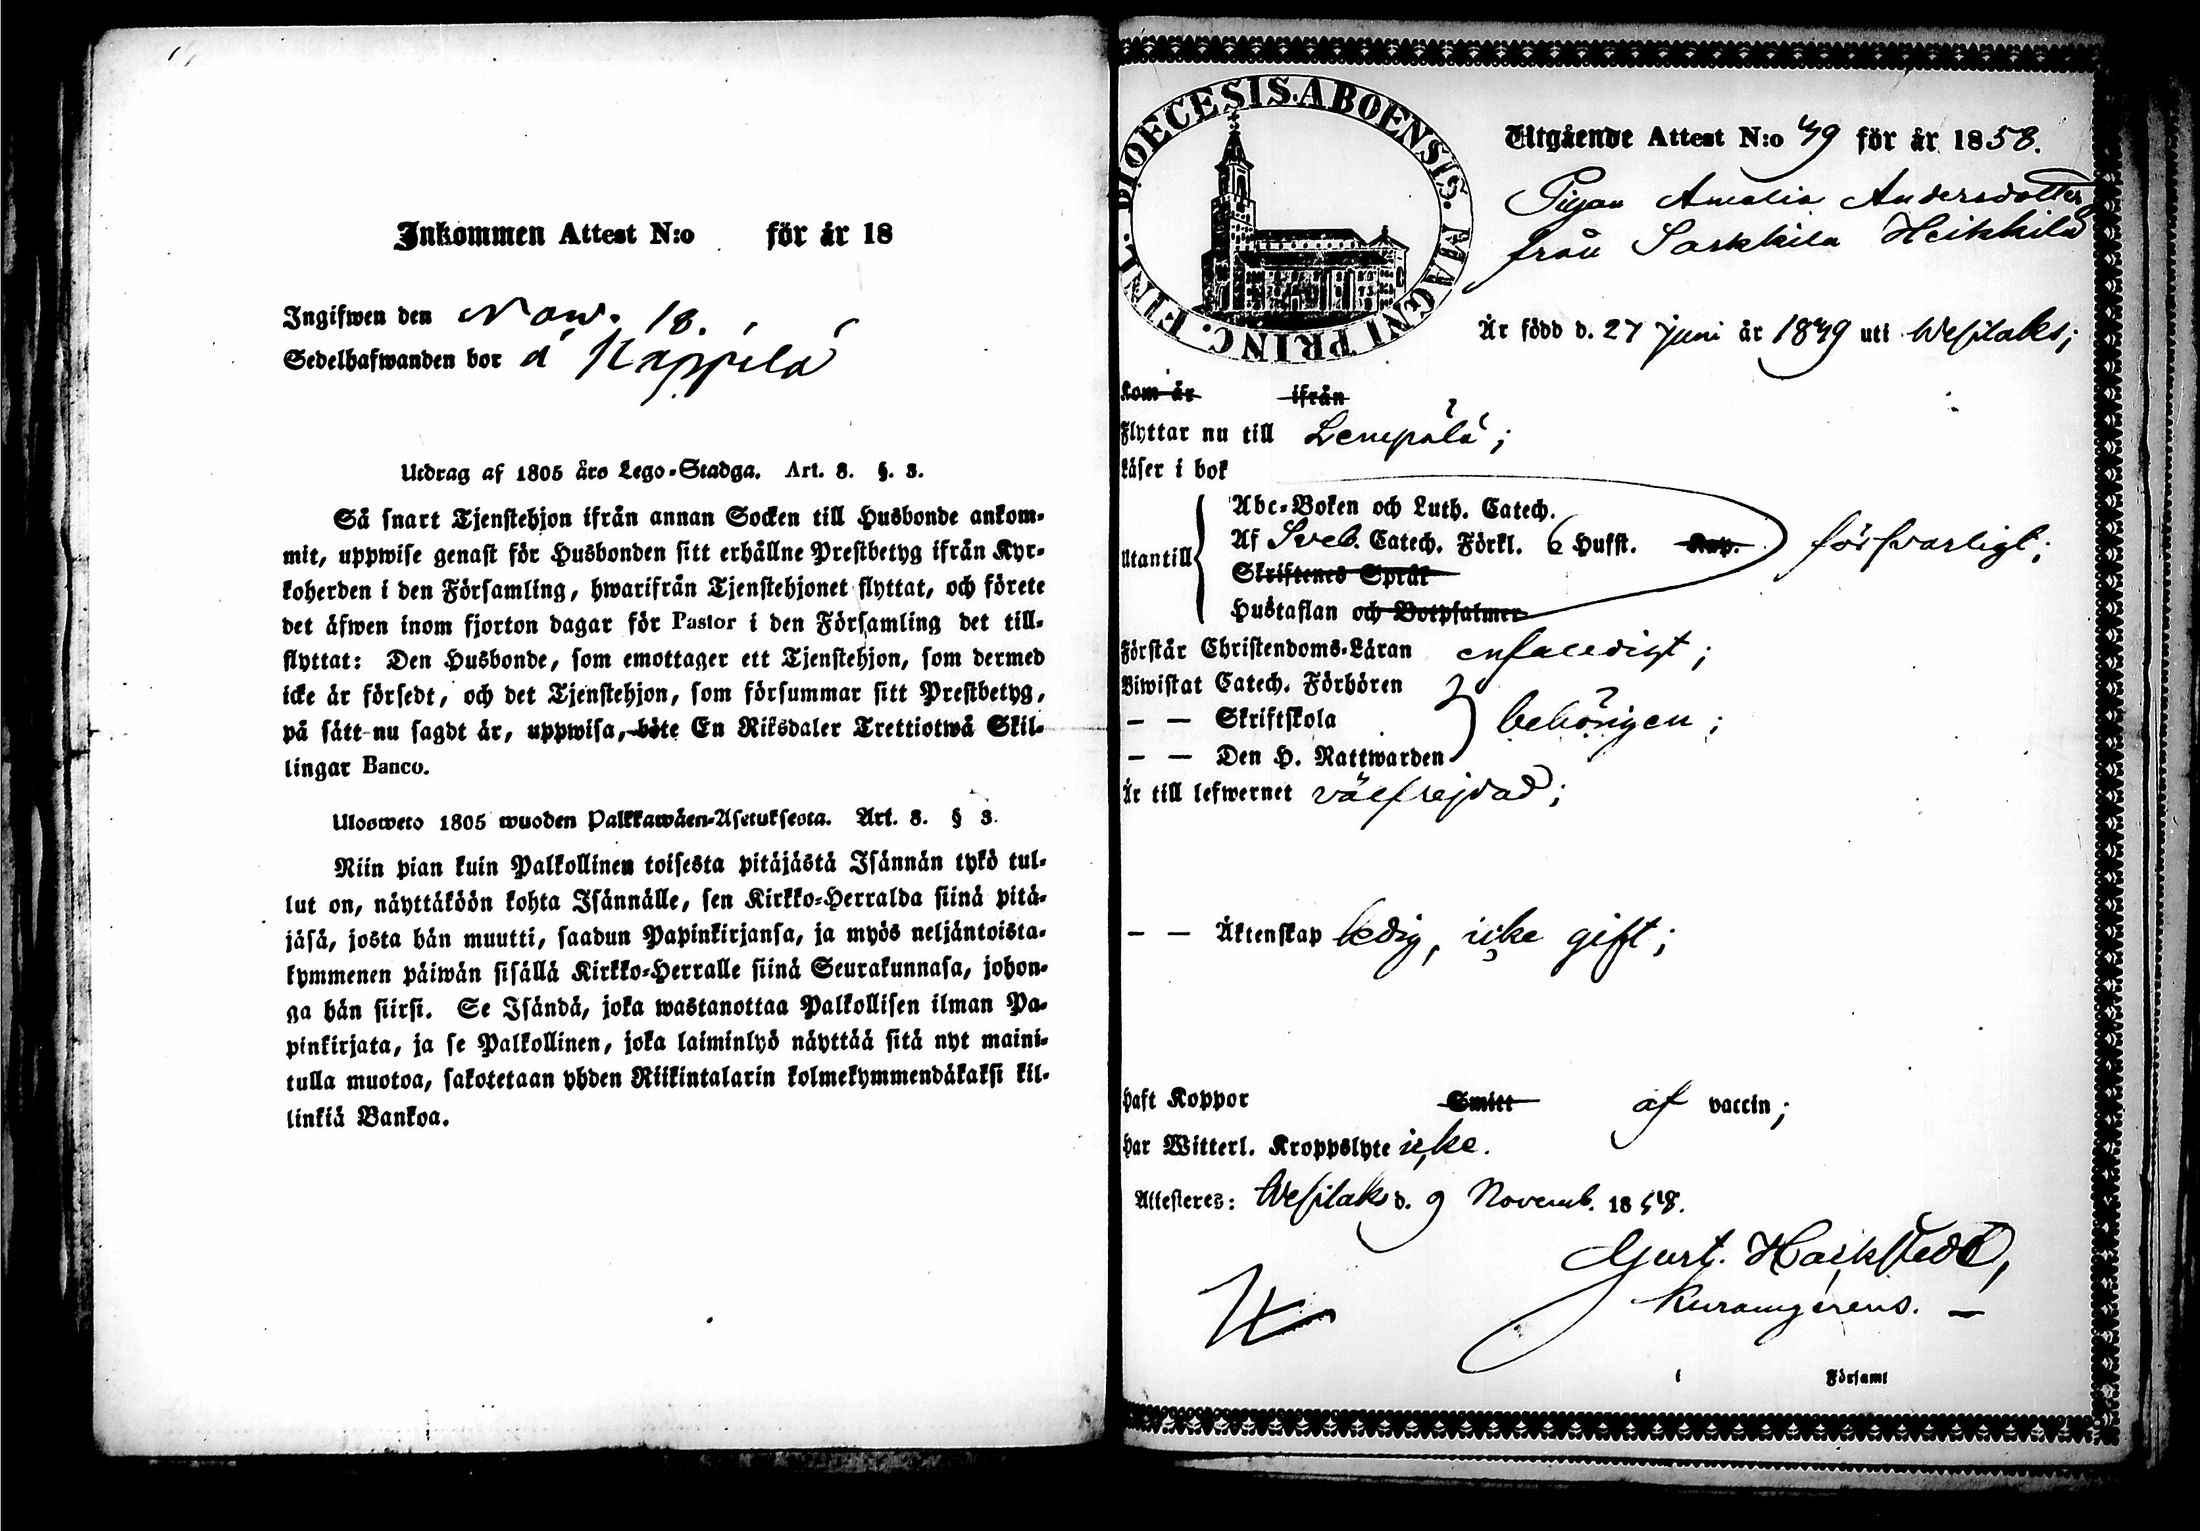 Inkommen Attest N:o för år 18
Ingifwen den Nov. 18.
Sedelhafwanden bor å Käppilä
Utdrag af 1805 års Lego-Stadga. Art. 8. §. 3.
Så snart Tjenstehjon ifrån annan Socken till Husbonde ankom-
mit, uppwise genast för Husbonden sitt erhållne Prestbetyg ifrån Kyr-
koherden i den Församling, hwarifrån Tjenstehjonet flyttat, och förete
det äfwen inom fjorton dagar för Pastor i den Församling det till-
flyttat: Den Husbonde, som emottager ett Tjenstehjon, som dermed
icke är försedt, och det Tjenstehjon, som försummar sitt Prestbetyg,
på sätt nu sagdt är, uppwisa, böte En Riksdaler Trettiotwå Skil-
lingar Banco.
Ulosweto 1805 wuoden Palkkawäen-Asetuksesta. Art. 8. § 3.
Niin pian kuin Palkollinen toisesta pitäjästä Isännän tykö tul-
lut on, näyttäköön kohta Isännälle, sen Kirkko-Herralda siinä pitä-
jäsä, josta hän muutti, saadun Papinkirjansa, ja myös neljäntoista-
kymmenen päiwän sisällä Kirkko-Herralle siinä Seurakunnasa, johon-
ga hän siirsi. Se Isändä, joka wastanottaa Palkollisen ilman Pa-
pinkirjata, ja se Palkollinen, joka laiminlyö näyttää sitä nyt maini-
tulla muotoa, sakotetaan yhden Riikintalarin kolmekymmendäkaksi kil-
linkiä Bankoa.
DIOECESIS.ABOENSIS. MAGNI PRINC. FINL.
Utgående Attest N:o 49 för år 1858.
Pigan Amalia Andersdotter
från Sarkkila Heikkilä
Är född d. 27 Juni år 1849 uti Wesilaks;
Kom år ifrån
Flyttar nu till Lempälä;
Läser i bok
Abc-Boken och Luth. Catech.
Utantill Af Sveb. Catech. Förkl. Husst. försvarligt;
Skriftenes Språk
Hustaflan och Botpsalmer
Förstår Christendoms-Läran enfaldigt;
Biwistat Catech. Förhören
— — Skriftskola behörigen;
— — Den H. Nattwarden
Är till lefwernet välfrejdad;
— — Äktenskap ledig, icke gift;
Haft Koppor Smitt af vaccin;
Har Witterl. Kroppslyte icke.
Attesteres: Wesilaks d. 9 Novemb. 1858.
Gust. Hackstedt,
i Församl